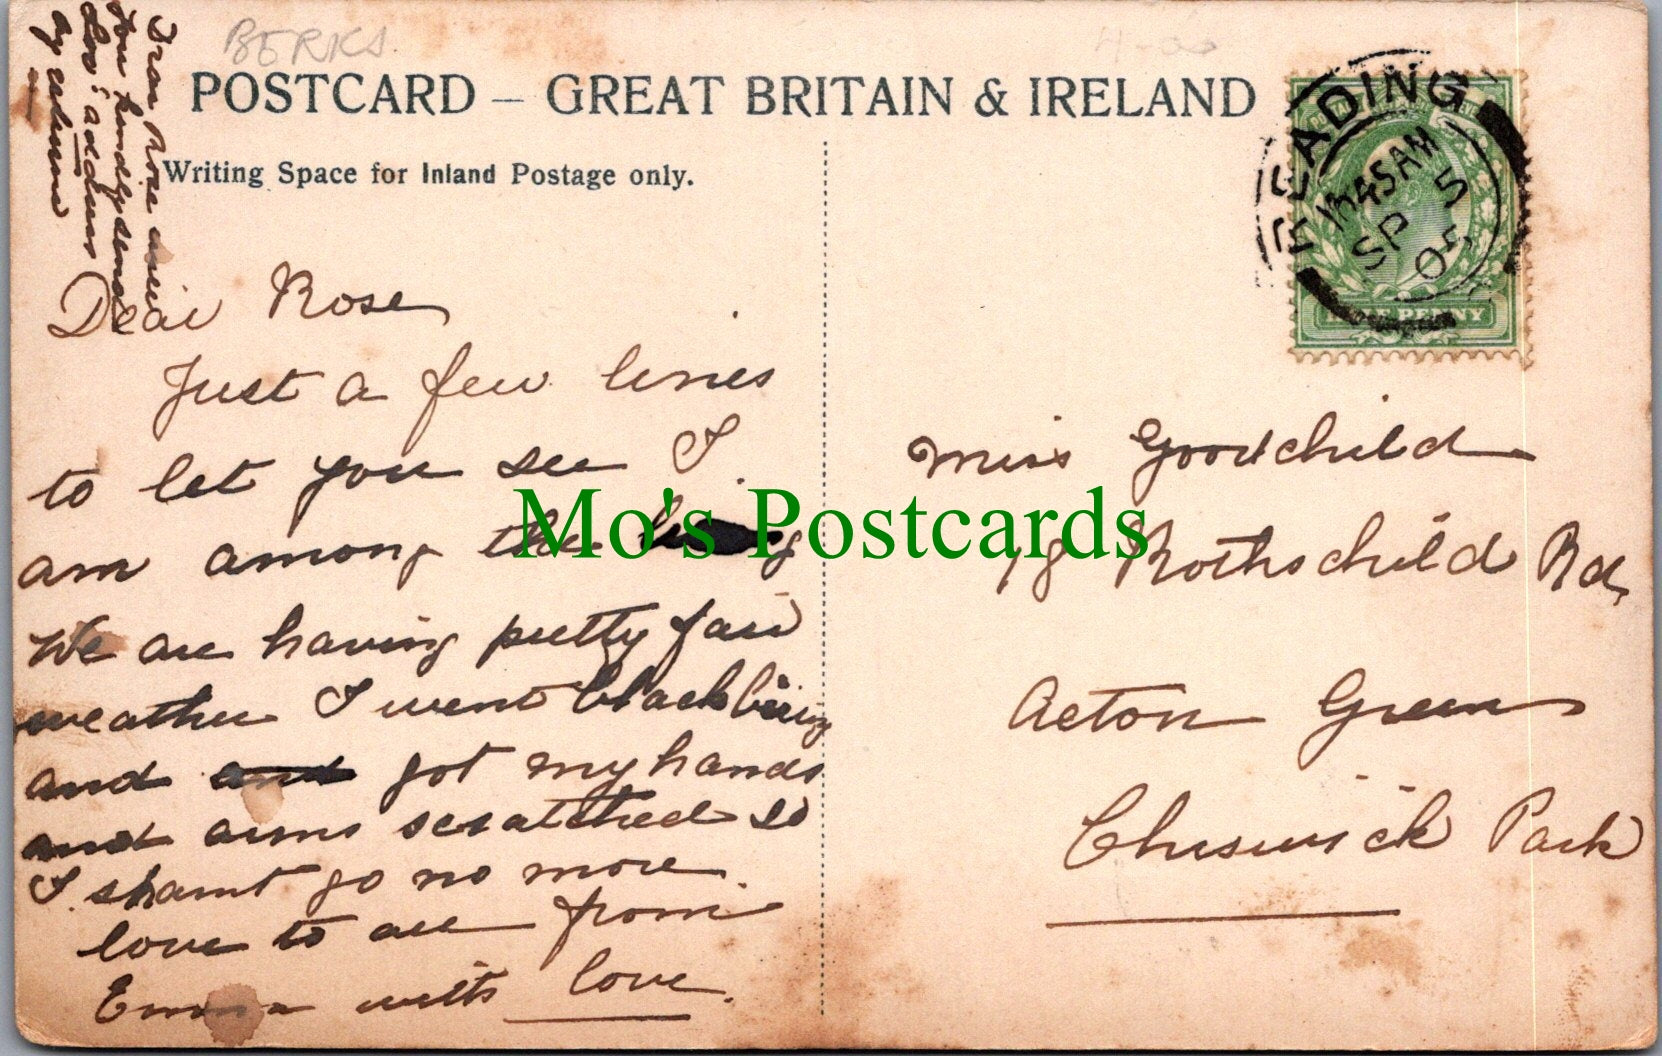 BERKS
POSTCARD – GREAT BRITAIN & IRELAND
Writing Space for Inland Postage only.
READING
1145AM
SP 5
05
HALF PENNY
Dear Rose
Just a few lines
to let you see I
am among the
We are having pretty fair
weather I went blackbering
and and got my hands
and arms scratched so
I shant go no more
love to all from
Emma with love.
Rose will
you kindly send
address
by return
Miss Goodchild
78 Rothschild Rd
Acton Green
Chiswick Park
Mo's Postcards